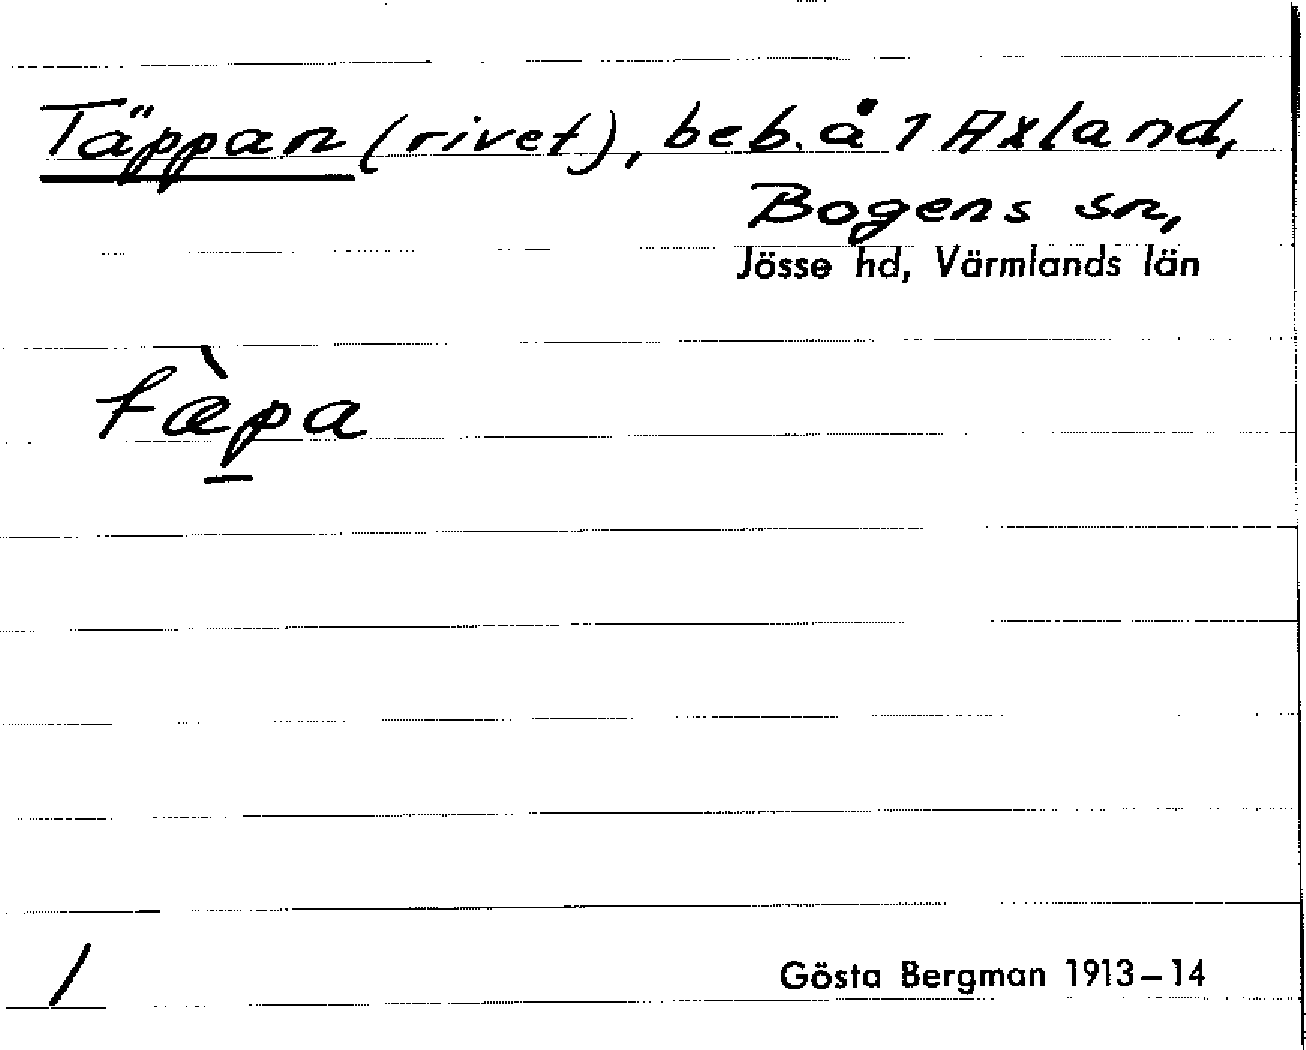 Täppan (rivet), beb. å 1 Axland,
Bogens sn,
Jösse hd, Värmlands län
tæ̀pa
/
Gösta Bergman 1913–14